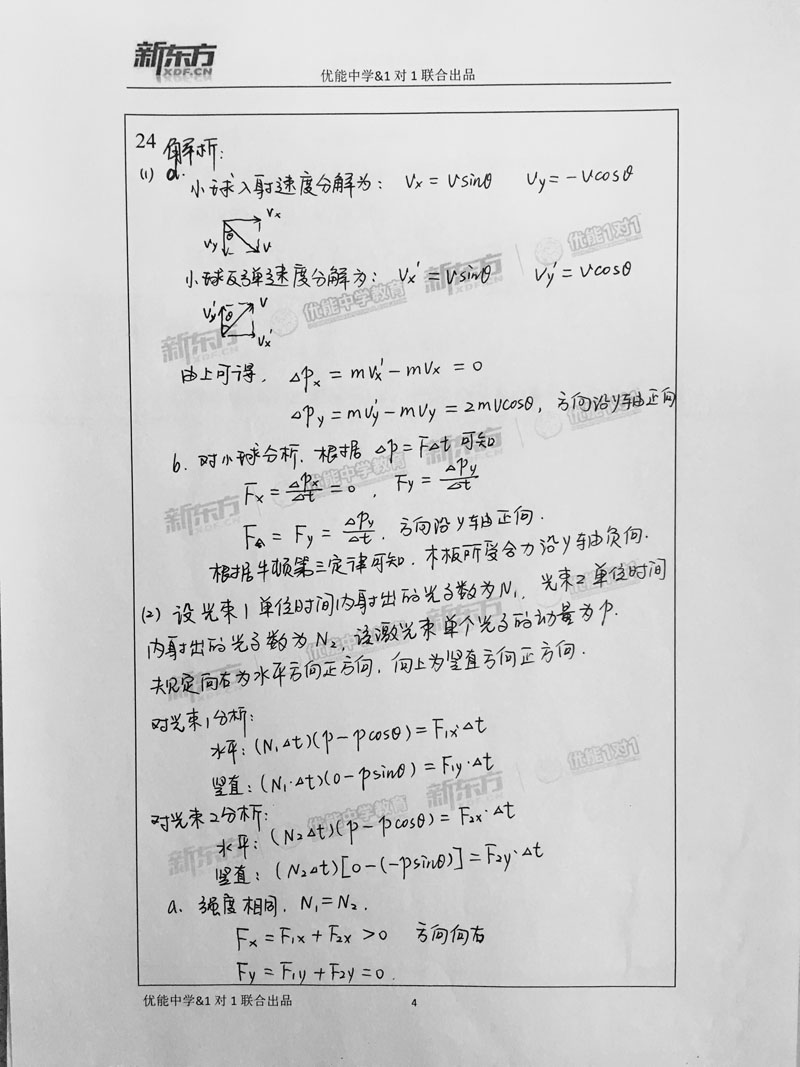 新东方
XDF.CN
优能中学&1 对 1 联合出品
24 解析:
(1) a. 小球入射速度分解为: Vx = Vsinθ Vy = -Vcosθ
Vx
θ
Vy V
小球反弹速度分解为: Vx' = Vsinθ Vy' = Vcosθ
Vy' θ V
Vx'
由上可得, △Px = mVx' - mVx = 0
△Py = mVy' - mVy = 2mVcosθ, 方向沿y轴正向
b. 对小球分析, 根据 △p = F△t 可知
Fx = △Px/△t = 0, Fy = △Py/△t
F合 = Fy = △Py/△t, 方向沿y轴正向.
根据牛顿第三定律可知, 木板所受合力沿y轴负向.
(2) 设光束1单位时间内射出的光子数为N1, 光束2单位时间
内射出的光子数为N2, 该激光束单个光子的动量为p.
规定向右为水平方向正方向, 向上为竖直方向正方向.
对光束1分析:
水平: (N1△t)(p-pcosθ) = F1x·△t
竖直: (N1·△t)(0-psinθ) = F1y·△t
对光束2分析:
水平: (N2△t)(p-pcosθ) = F2x·△t
竖直: (N2△t)[0-(-psinθ)] = F2y·△t
a. 强度相同, N1 = N2.
Fx = F1x + F2x > 0 方向向右
Fy = F1y + F2y = 0.
优能中学&1 对 1 联合出品
4